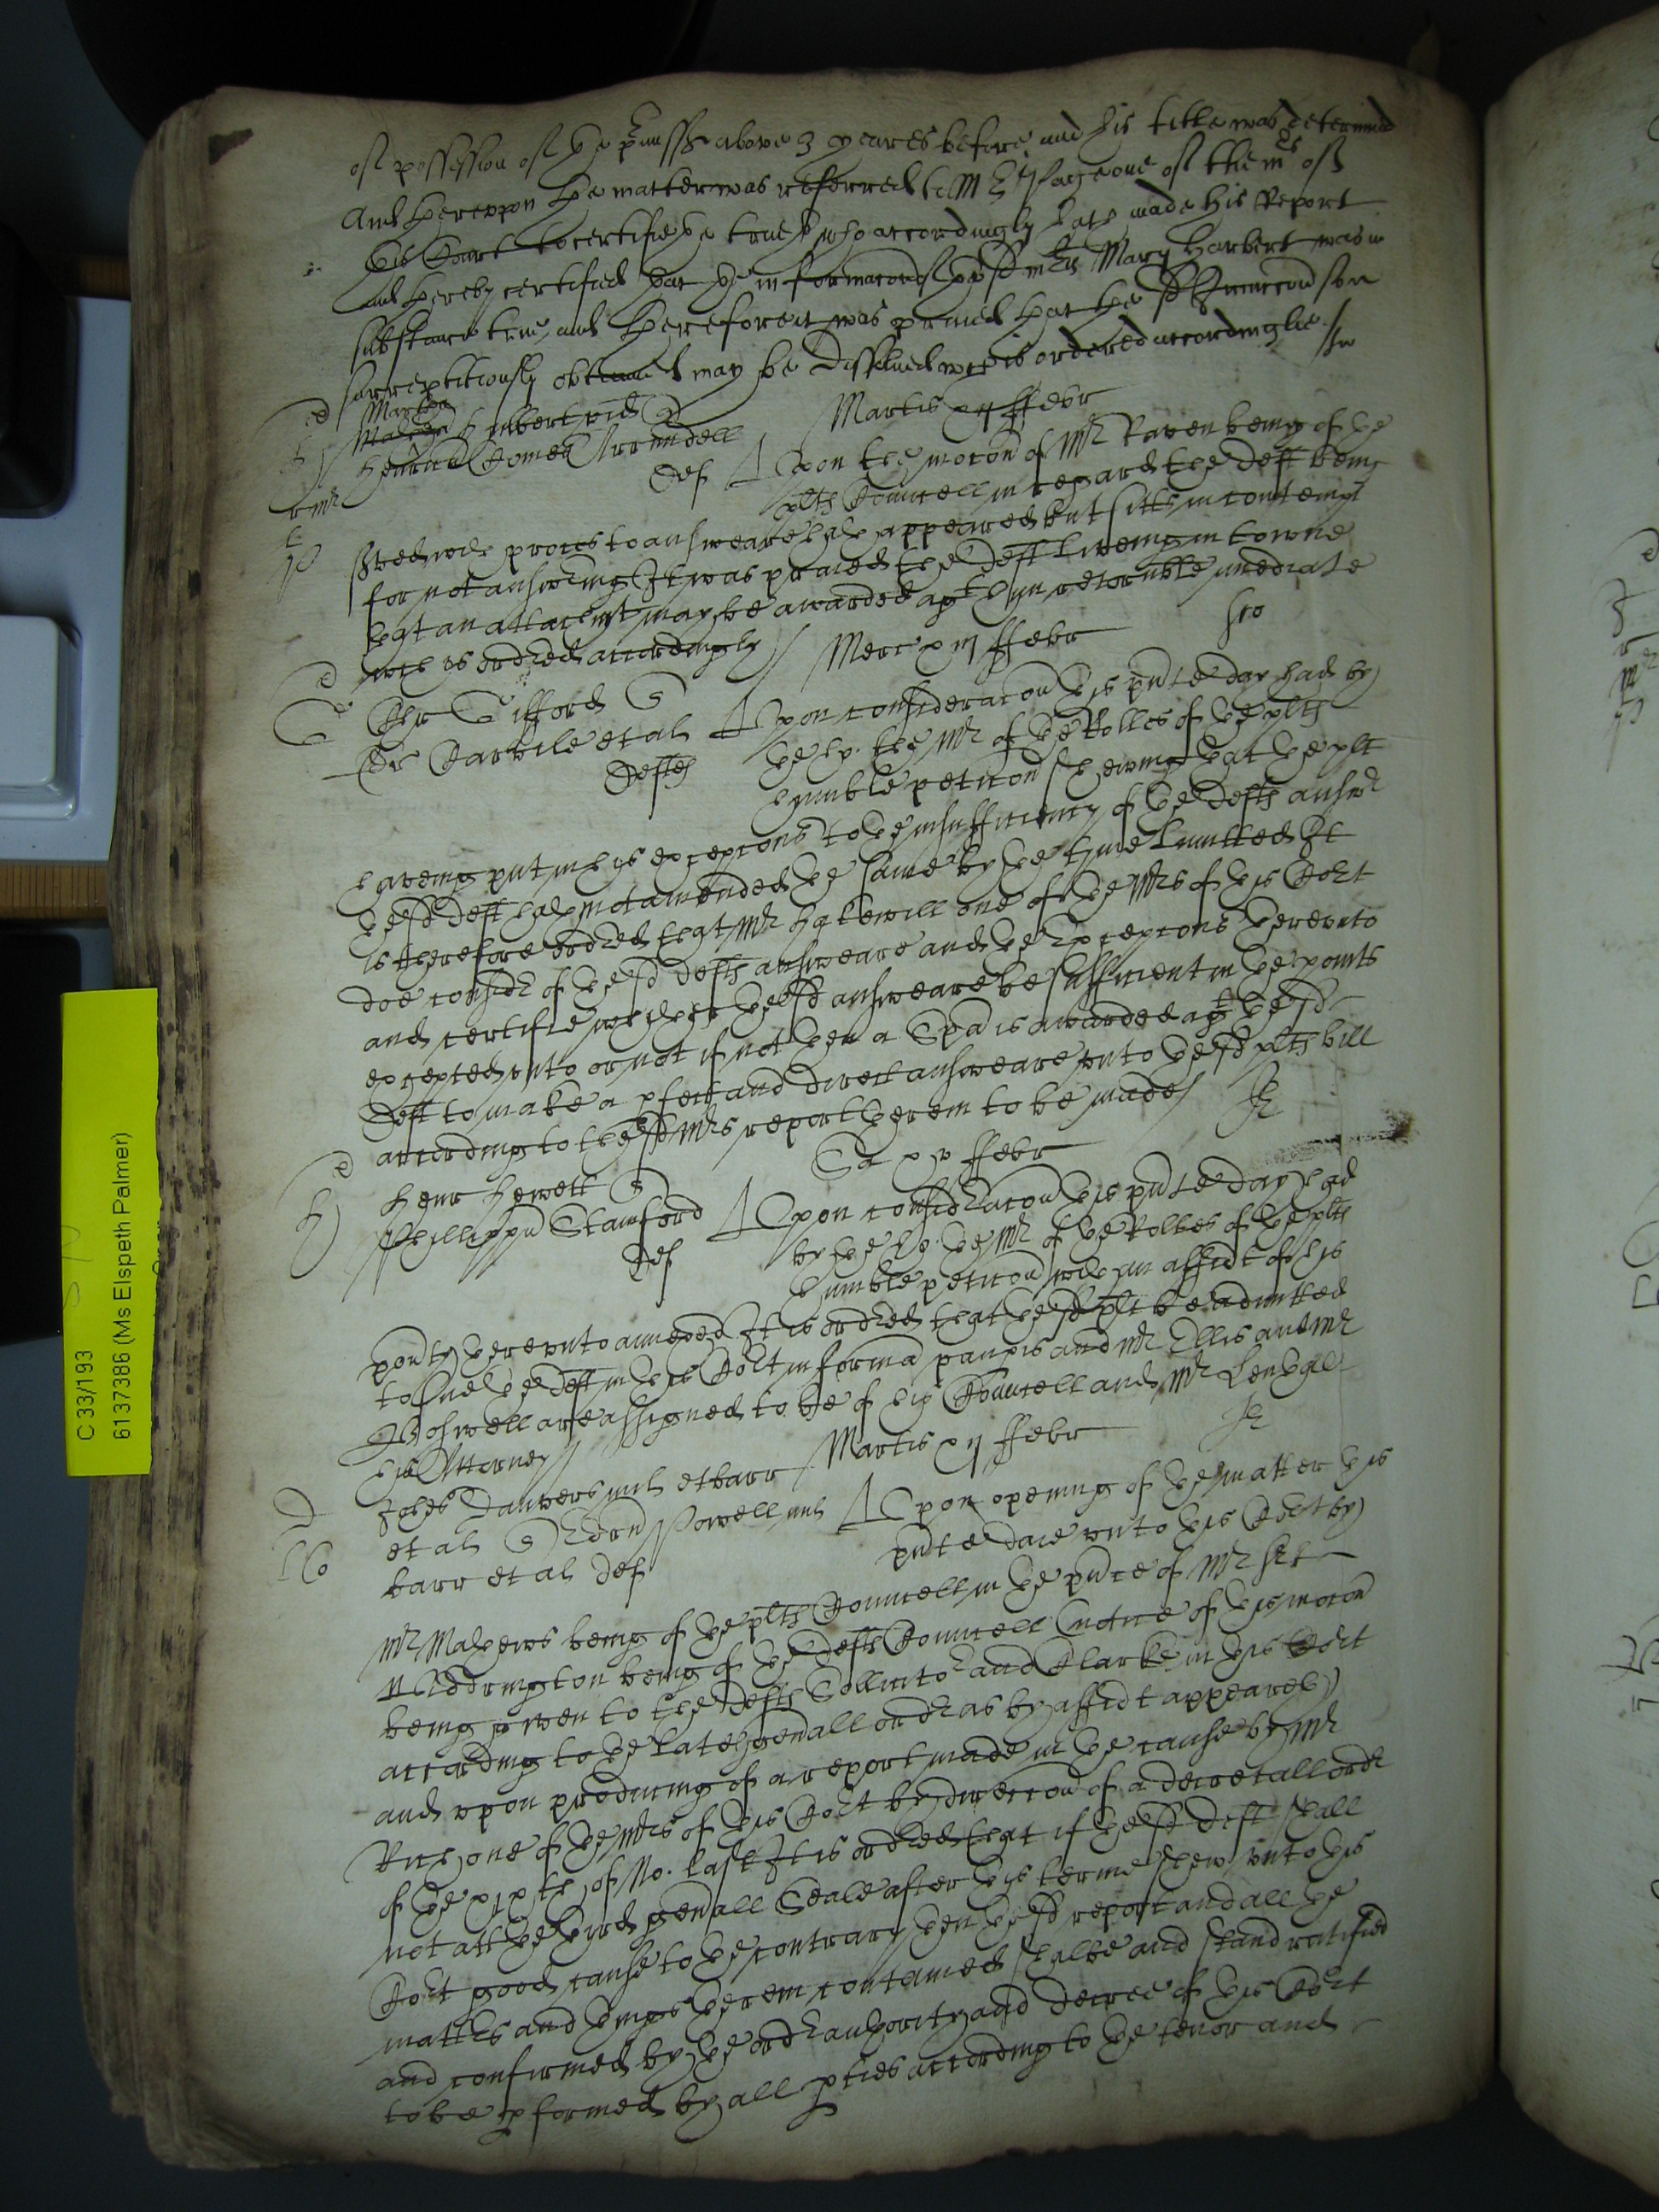 of possession of the prmisss above 3 yeares before and his title was determined
And thereupon the matter was referred to Mr Page one of the mrs of
this Court to certifie the trueth who accordingly hath made his Report
and thereby certified that the informacon of the sd mris Mary Harbert was in
substance true, and therefore it was praied that the sd Iniunccon soe
surreptitiously obtained may be dissolved wch is ordered accordinglie
Martis xij ffebr
Henricus Comes Arrundell
Def
Upon the mocon of Mr Raven being of the
plts Councell in regard the Deft being
served wth proces to answeare hath appeared but sitts in contempt
for not answering It was praied the Deft liveing in towne
that an attachmt may be awarded agt him retornable imediate
wch is ordred accordingly
Merc xiij ffebr
Chr Gifford
Carvile et al
Deftes
Upon consideracon this pnte day had by
the mr of the Rolles of the plts
humble peticon shewing that the plt
haveing put in his excepcons to the insufficiency of the Defts answr
the sd Deft hath not amended the same by the tyme limitted It
is therefore ordred that Mr Hakewill one of the Mrs of this Cort
doe considr of the sd defts answeare and the excepcons therevnto
and certifie whether the sd answeare be sufficient in the points
excepted vnto or not if not then a Spa is awarded agt the sd
Deft to make a pfect and direct answeare vnto the sd plts bill
according to the sd Mrs report therein to be made
Sa xvi ffebr
Henr Hewett
Phillippu Stamford
Def
Upon considracon this pnte day had
by the mr of the Rolles of the plts
humble peticon wth an affidt of his
povty therevnto annexed It is ordred that the sd plt be admitted
to sue the Deft in this Cort in forma paupis and Mr Ellis and Mr
are assigned to be of his Councell and Mr
his Attorney
Martis xij ffebr
Danvers mil et barr
et al Powell mil
barr et al Def
Upon opening of the matter this
pnte daie vnto this Cort by
Mr Mathews being of the plts Councell in the pnce of Mr
Widdrington being of the Defts Councell (notice of this mocon
being given to the Defts Sollicitor and Clarke in this Cort
according to the late genall ordr as by affidt appeareth)
and vpon producing of a report made in the cause by Mr
Rich one of the Mrs of this Cort by direccon of a decretall ordr
of the xixth of No. last It is ordred that if the sd Deft shall
not att the third genall Seale after this terme shew vnto this
Cort good cause to the contrary then the sd report and all the
matters and things therein conteined shalbe and stand ratified
and confirmed by the ordr authority and decree of this Cort
to be pformed by all pties according to the tenor and
C 33/193
6137386 (Ms Elspeth Palmer)